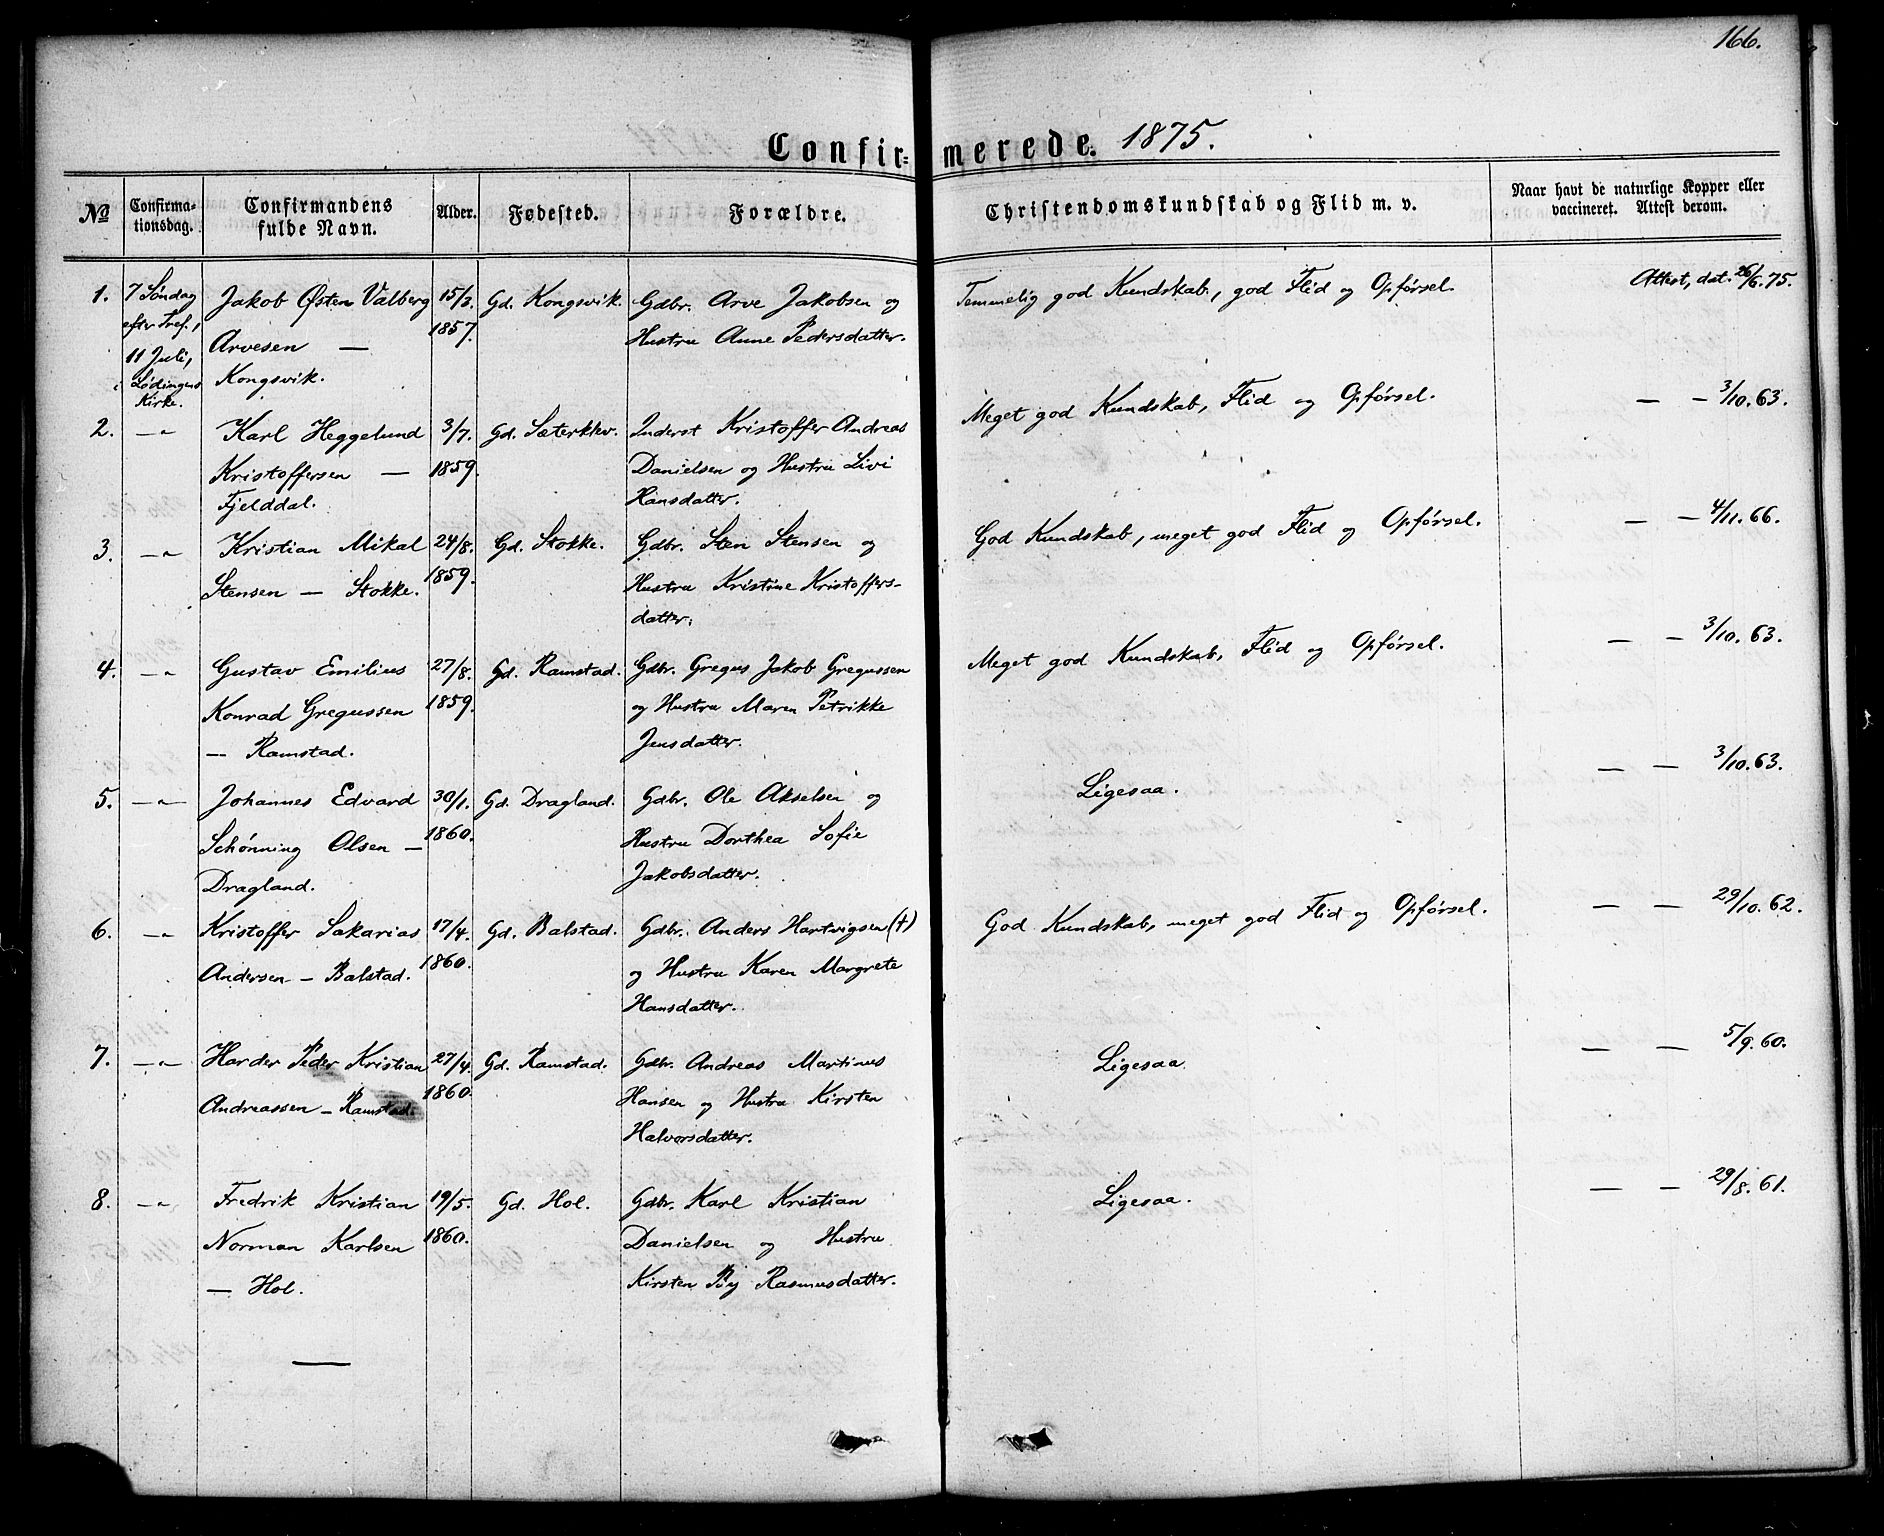 166.
Confir= merede. 1875.
No Confirma- tionsdag. Confirmandens fulde Navn. Alder. Fødested. Forældre. Christendomskundskab og Flid m. v. Naar havt de naturlige Kopper eller vaccineret. Attest derom.
1. 7 Søndag Jakob Østen Valberg 15/3. Gd. Kongsvik. Gdbr. Arve Jakobsen og Temmelig god Kundskab, god Flid og Opførsel. Attest, dat. 26/6. 75.
efter Tref., Arvesen — 1857. Hustru Anne Pedersdatter.
11 Juli, Kongsvik.
i Lødingens
Kirke.
2. —"— Karl Heggelund 3/7. Gd. Sæterklev. Inderst Kristoffer Andreas Meget god Kundskab, Flid og Opførsel. — — 3/10. 63.
Kristoffersen — 1859. Danielsen og Hustru Livi
Fjelddal. Hansdatter.
3. —"— Kristian Mikal 24/8. Gd. Stokke. Gdbr. Sten Stensen og God Kundskab, meget god Flid og Opførsel. — — 4/11. 66.
Stensen — Stokke. 1859. Hustru Kristine Kristoffers-
datter.
4. —"— Gustav Emilius 27/8. Gd. Ramstad. Gdbr. Gregus Jakob Gregussen Meget god Kundskab, Flid og Opførsel. — — 3/10. 63.
Konrad Gregussen 1859. og Hustru Maren Petrikke
— Ramstad. Jensdatter.
5. —"— Johannes Edvard 30/1. Gd. Dragland. Gdbr. Ole Akselsen og Ligesaa. — — 3/10. 63.
Schønning Olsen — 1860. Hustru Dorthea Sofie
Dragland. Jakobsdatter.
6. —"— Kristoffer Sakarias 17/4. Gd. Balstad. Gdbr. Anders Hartvigsen (†) God Kundskab, meget god Flid og Opførsel. — — 29/10. 62.
Andersen — Balstad. 1860. og Hustru Karen Margrete
Hansdatter.
7. —"— Harder Peder Kristian 27/4. Gd. Ramstad. Gdbr. Andreas Martinus Ligesaa. — — 5/9. 60.
Andreassen — Ramstad. 1860. Hansen og Hustru Kirsten
Halvorsdatter.
8. —"— Fredrik Kristian 19/5. Gd. Hol. Gdbr. Karl Kristian Ligesaa. — — 29/8. 61.
Norman Karlsen 1860. Danielsen og Hustru
— Hol. Kirsten Rasmusdatter.